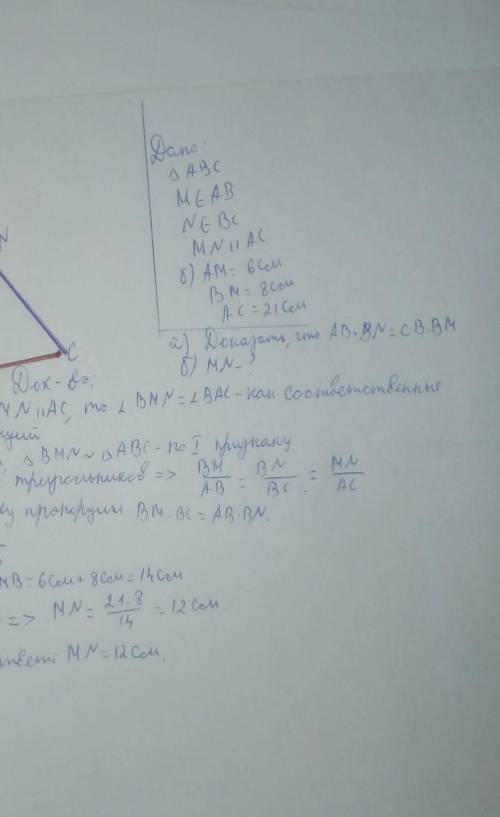 N
C
Дано:
△ABC
M∈AB
N∈BC
MN∥AC
б) AM=6см
BM=8см
AC=21см
а) Доказать, что AB·BN=CB·BM
б) MN-?
Док-во:
MN∥AC, то ∠BMN=∠BAC-как соответственные
△BMN∼△ABC-по I признаку
треугольников => BM/AB = BN/BC = MN/AC
пропорции BM·BC=AB·BN.
MB=6см+8см=14см
=> MN= 21·8/14 =12см.
твет: MN=12см.